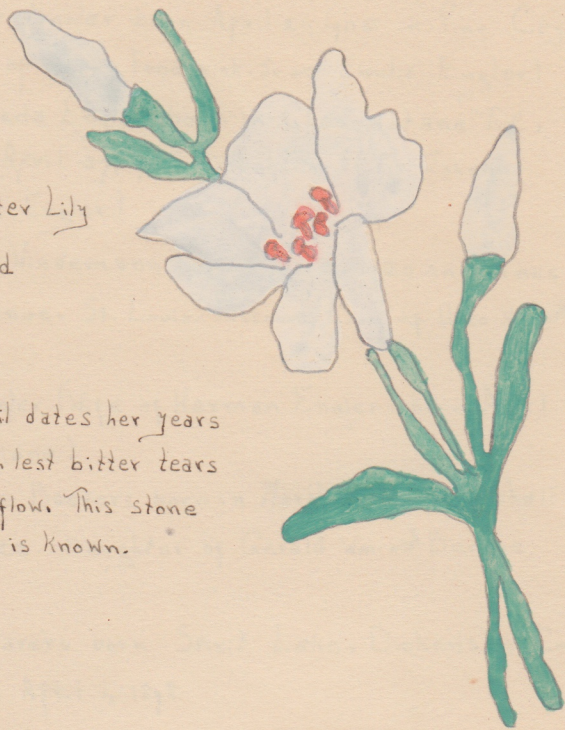 Lily
il dates her years
lest bitter tears
flow. This stone
is known.